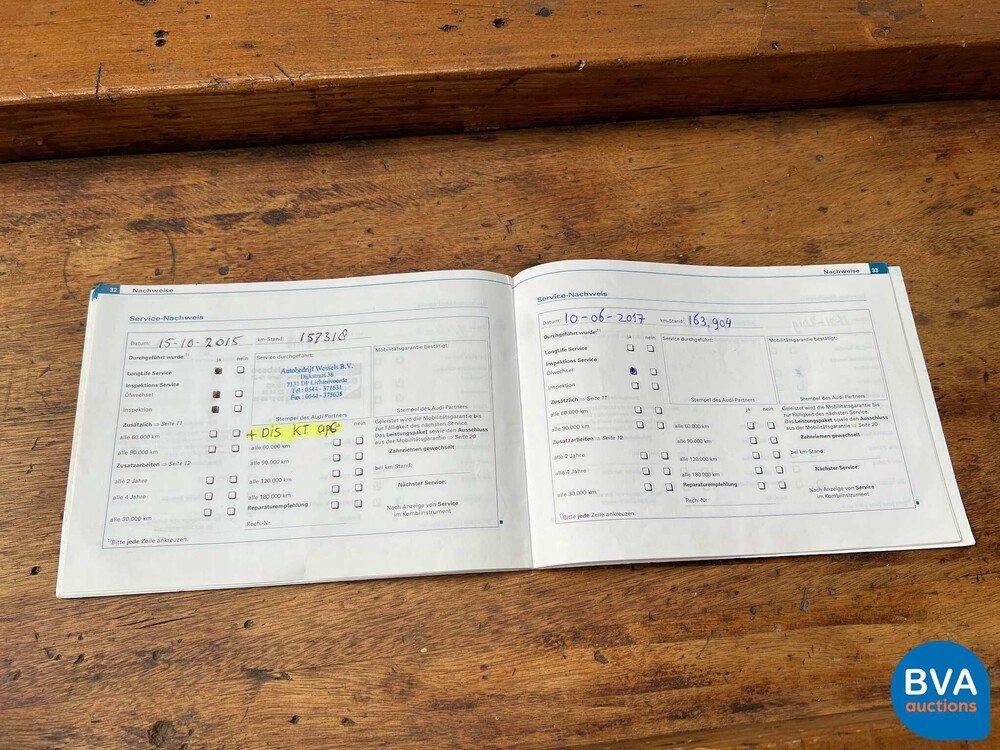 32 Nachweise
Service-Nachweis
Datum: 15-10-2015 km-Stand: 157318
Durchgeführt wurde:¹⁾ ja nein
LongLife Service
Inspektions Service
Ölwechsel
Inspektion
Zusätzlich ⇨ Seite 11
alle 60.000 km
alle 90.000 km
Zusatzarbeiten ⇨ Seite 12
alle 2 Jahre
alle 4 Jahre
alle 30.000 km
¹⁾Bitte jede Zeile ankreuzen.
Service durchgeführt:
Autobedrijf Wessels B.V.
Dijkstraat 38
7131 DP Lichtenvoorde
Tel : 0544 - 371631
Fax : 0544 - 375635
Stempel des Audi-Partners
+ DIS KT
nein
alle 60.000 km
alle 90.000 km
alle 120.000 km
alle 180.000 km
Reparaturempfehlung
Rech.-Nr.
Mobilitätsgarantie bestätigt:
Stempel des Audi-Partners
Geleistet wird die Mobilitätsgarantie bis
zur Fälligkeit des nächsten Service.
Das Leistungspaket sowie den Ausschluss
aus der Mobilitätsgarantie ⇨ Seite 20
Zahnriemen gewechselt
bei km-Stand:
Nächster Service:
Nach Anzeige von Service
im Kombiinstrument
Nachweise 33
Service-Nachweis
Datum: 10-06-2017 km-Stand: 163.904
Durchgeführt wurde:¹⁾ ja nein
LongLife Service
Inspektions Service
Ölwechsel
Inspektion
Zusätzlich ⇨ Seite 11
alle 60.000 km
alle 90.000 km
Zusatzarbeiten ⇨ Seite 12
alle 2 Jahre
alle 4 Jahre
alle 30.000 km
¹⁾Bitte jede Zeile ankreuzen.
Service durchgeführt:
Stempel des Audi-Partners
ja nein
alle 60.000 km
alle 90.000 km
alle 120.000 km
alle 180.000 km
Reparaturempfehlung
Rech.-Nr.
Mobilitätsgarantie bestätigt:
Stempel des Audi-Partners
Geleistet wird die Mobilitätsgarantie bis
zur Fälligkeit des nächsten Service.
Das Leistungspaket sowie den Ausschluss
aus der Mobilitätsgarantie ⇨ Seite 20
Zahnriemen gewechselt
bei km-Stand:
Nächster Service:
Nach Anzeige von Service
im Kombiinstrument
BVA
auctions